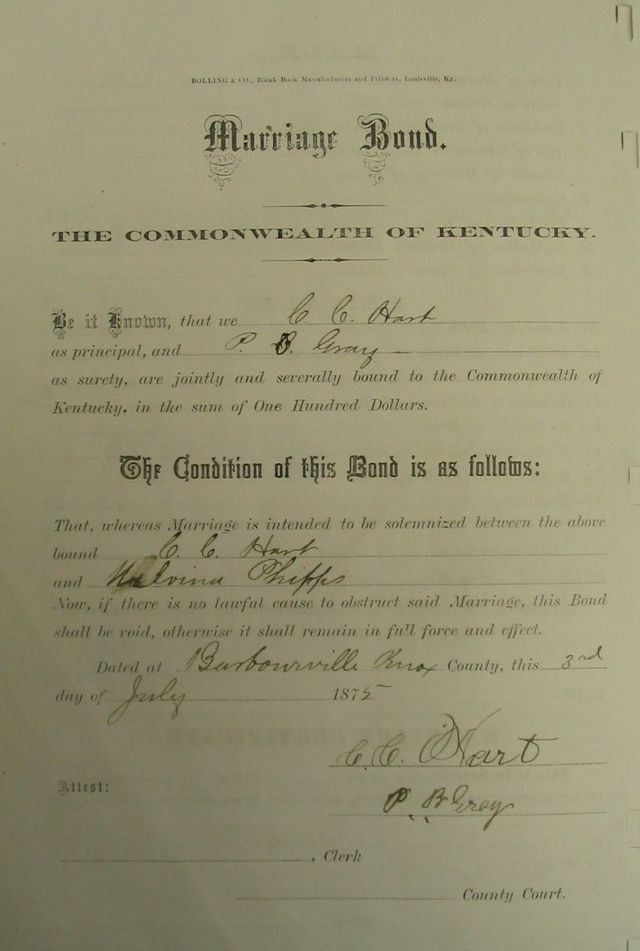 BOLLING & CO., Blank Book Manufacturers and Printers, Louisville, Ky.
Marriage Bond.
THE COMMONWEALTH OF KENTUCKY.
Be it Known, that we C C. Hart
as principal, and P. B. Gray
as surety, are jointly and severally bound to the Commonwealth of
Kentucky, in the sum of One Hundred Dollars.
The Condition of this Bond is as follows:
That, whereas Marriage is intended to be solemnized between the above
bound C. C. Hart
and Malvina Phipps
Now, if there is no lawful cause to obstruct said Marriage, this Bond
shall be void, otherwise it shall remain in full force and effect.
Dated at Barbourville Knox County, this 3rd
day of July 1875
C. C. Hart
Attest:
P. B Gray
, Clerk
County Court.